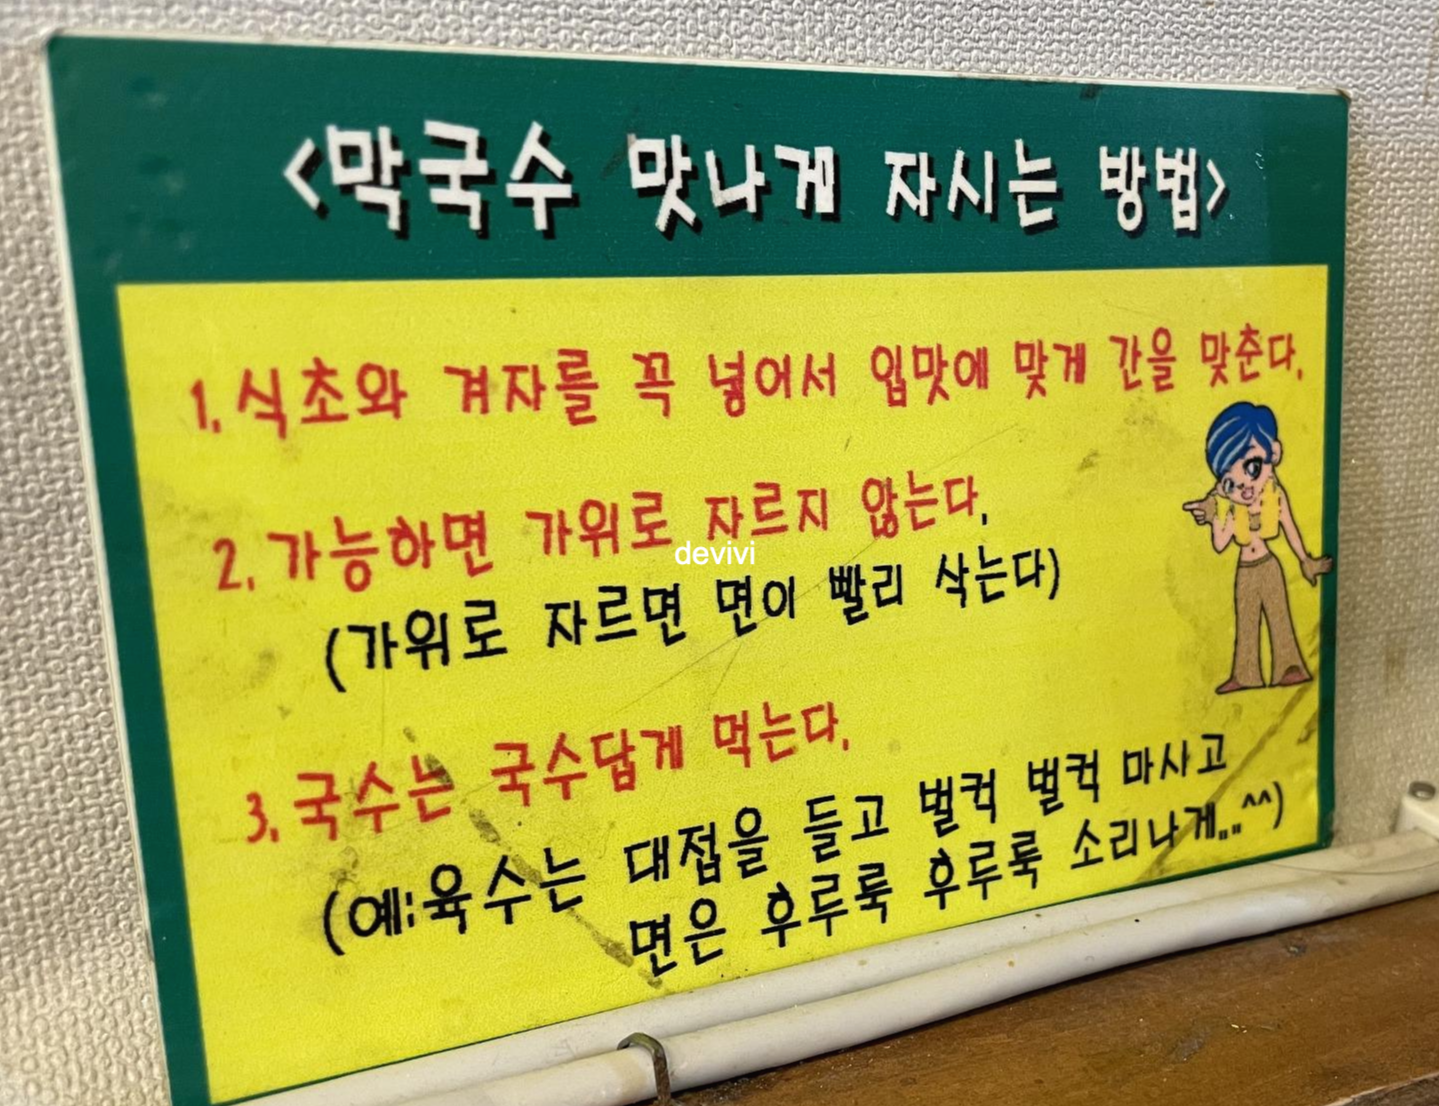 <막국수 맛나게 자시는 방법>
1. 식초와 겨자를 꼭 넣어서 입맛에 맞게 간을 맞춘다.
2. 가능하면 가위로 자르지 않는다.
devivi
(가위로 자르면 면이 빨리 삭는다)
3. 국수는 국수답게 먹는다.
(예:육수는 대접을 들고 벌컥 벌컥 마사고
면은 후루룩 후루룩 소리나게....^^)